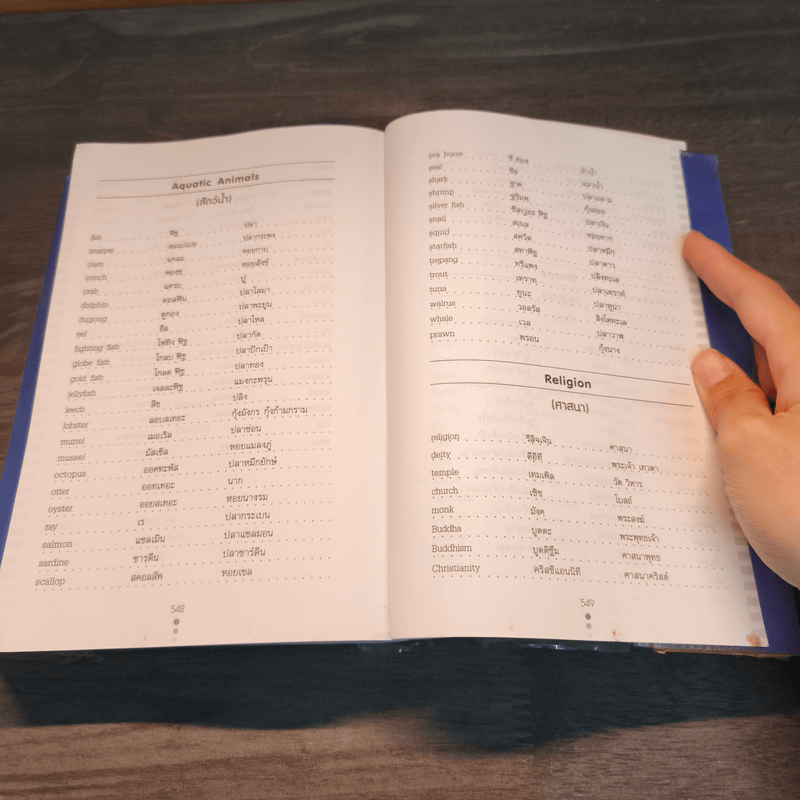 Aquatic Animals
(สัตว์น้ำ)
fish ฟิช ปลา
snapper สแนปเปอ ปลากระพง
clam แคลม หอยกาบ
conch คองชฺ หอยสังข์
crab แครบ ปู
dolphin ดอลฟิน ปลาโลมา
dugong ดูกอง ปลาพะยูน
eel อีล ปลาไหล
fighting fish ไฟทิง ฟิช ปลากัด
globe fish โกลบ ฟิช ปลาปักเป้า
gold fish โกลด ฟิช ปลาทอง
jellyfish เจลละฟิช แมงกะพรุน
leech ลีช ปลิง
lobster ลอบสเทอะ กุ้งมังกร กุ้งก้ามกราม
murrel เมอเริล ปลาช่อน
mussel มัสเซิล หอยแมลงภู่
octopus ออคทะพัส ปลาหมึกยักษ์
otter ออทเทอะ นาก
oyster ออยสเทอะ หอยนางรม
ray เร ปลากระเบน
salmon แซลเมิน ปลาแซลมอน
sardine ซารฺดีน ปลาซาร์ดีน
scallop สคอลลัพ หอยเชล
548
sea horse ซี ฮอส ม้าน้ำ
seal ซีล แมวน้ำ
shark ชาค ปลาฉลาม
shrimp ชริมพ กุ้งฝอย
silver fish ซิลเวอะ ฟิช ปลาเงิน
snail สเนล หอยทาก
squid สควิด ปลาหมึก
starfish สทาฟิช ปลาดาว
trepang ทรีแพง ปลิงทะเล
trout เทราทฺ ปลาเทราท์
tuna ทูนะ ปลาทูน่า
walrus วอลรัส สิงโตทะเล
whale เวล ปลาวาฬ
prawn พรอน กุ้งนาง
Religion
(ศาสนา)
religion รีลิจเจิน ศาสนา
deity ดีอิตี พระเจ้า เทวดา
temple เทมเพิล วัด วิหาร
church เชิช โบสถ์
monk มังคฺ พระสงฆ์
Buddha บูดดะ พระพุทธเจ้า
Buddhism บูดดิซึม ศาสนาพุทธ
Christianity คริสชีแอนนิที ศาสนาคริสต์
549